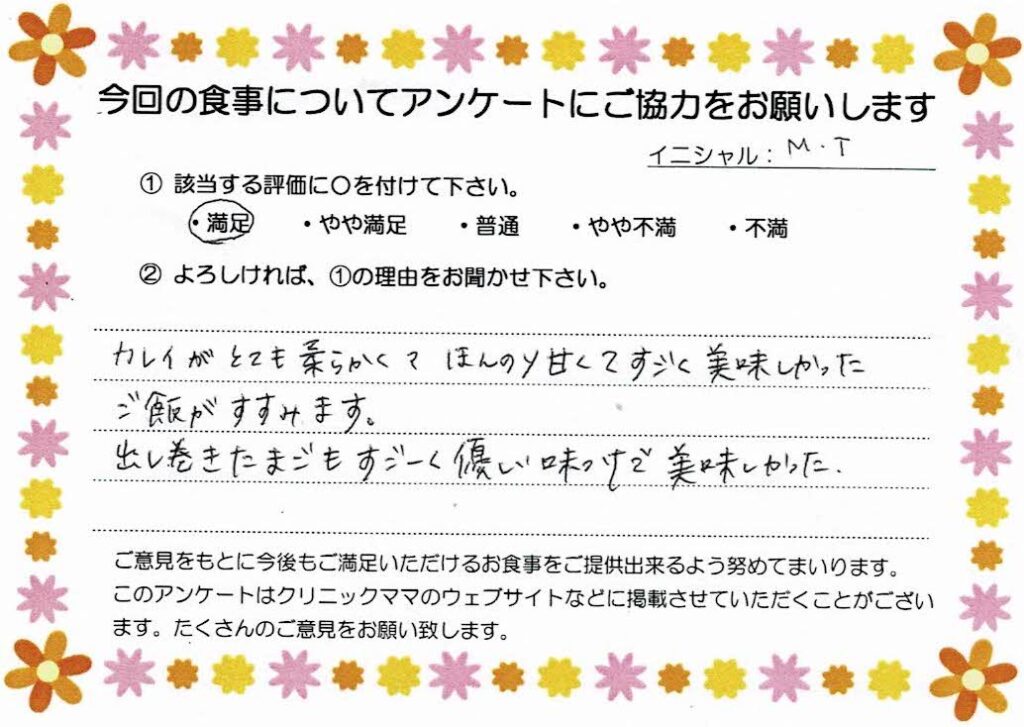 今回の食事についてアンケートにご協力をお願いします
イニシャル： M・T
① 該当する評価に○を付けて下さい。
・満足 ・やや満足 ・普通 ・やや不満 ・不満
② よろしければ、①の理由をお聞かせ下さい。
カレイがとても柔らかくて ほんのり甘くてすごく美味しかった
ご飯がすすみます。
出し巻きたまごもすごーく優しい味つけで美味しかった.
ご意見をもとに今後もご満足いただけるお食事をご提供出来るよう努めてまいります。
このアンケートはクリニックママのウェブサイトなどに掲載させていただくことがござい
ます。たくさんのご意見をお願い致します。